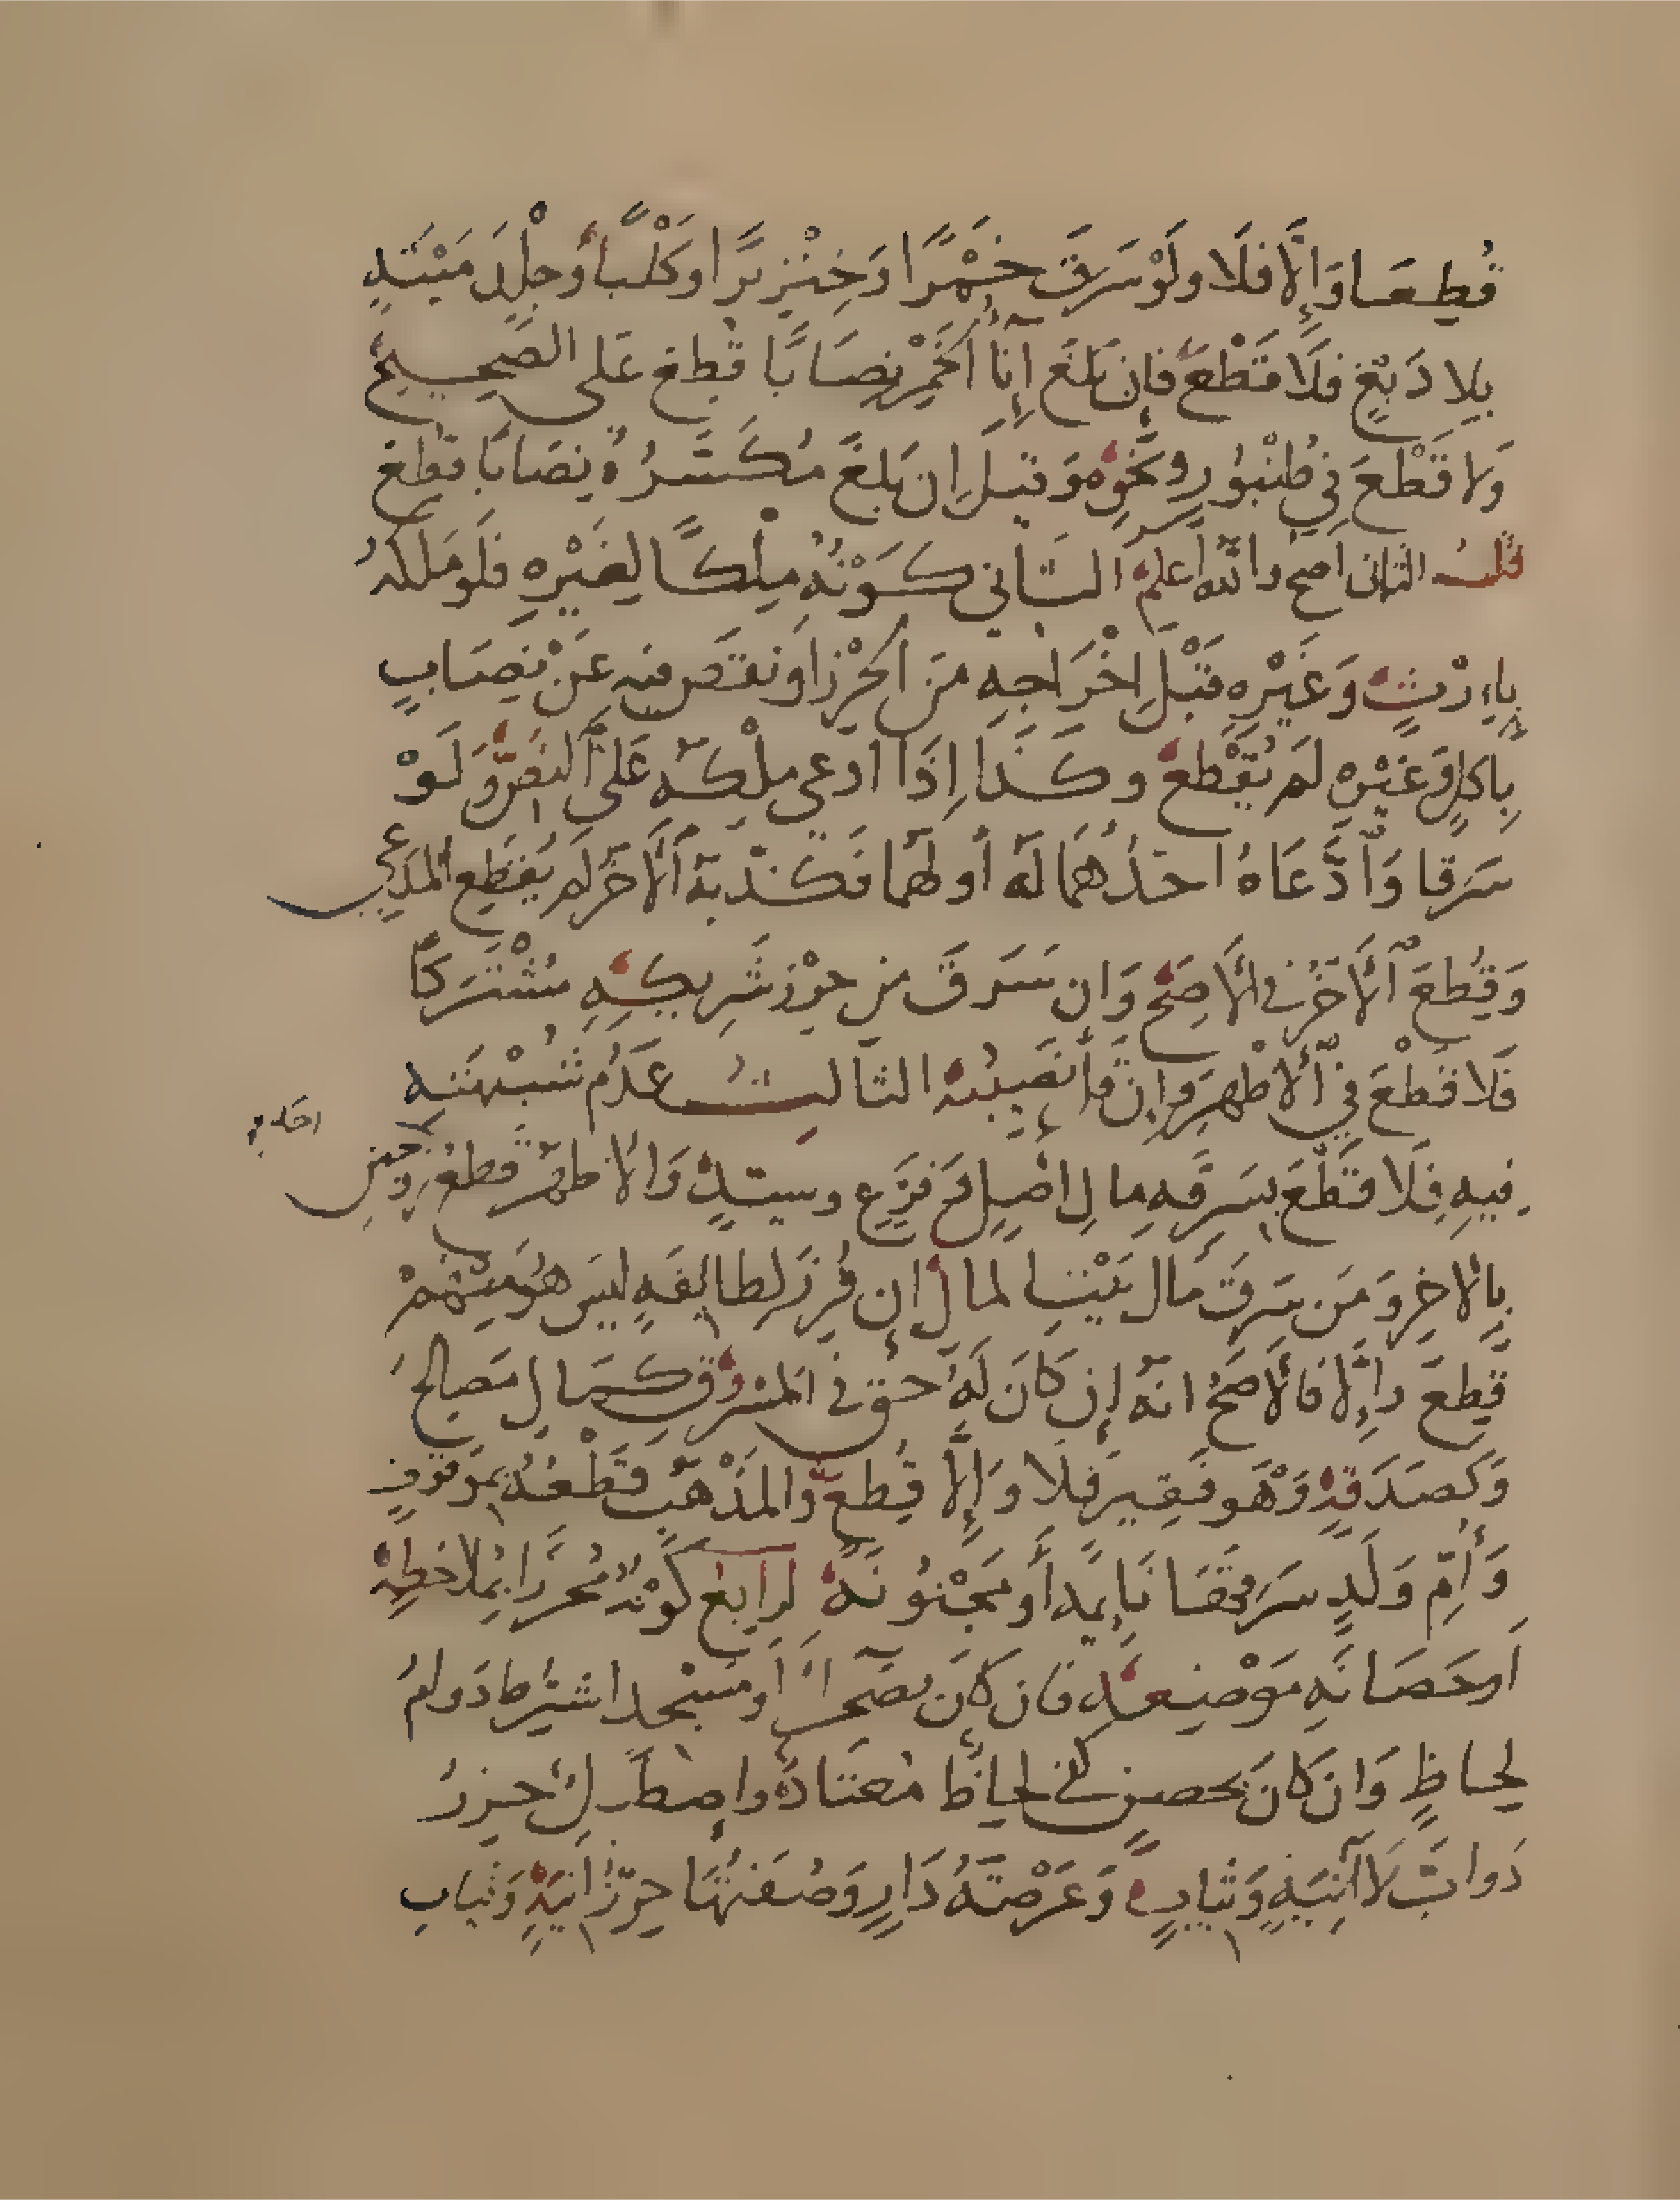 قُطِعَا وَإِلَّا فَلَا وَلَوْ سَرَقَ خَمْرًا وَخِنْزِيرًا اوكَلْبًا أَوْجِلْدَ مَيْتَةٍ
بِلا دَبْغٍ فَلَا قَطْعَ فَإِن بَلَغَ إِنَآءُ الخَمْرِ نِصَابًا قُطِعَ عَلَى الصَّحِيحِ
وَلا قَطْعَ فِي طُنْبُورٍ وَنَحْوِهِ وَقِيلَ إِن بَلَغَ مُكَسَّرُهُ نِصَابًا قُطِعَ
قلتُ الثاني اصح والله اعلم الثَّانِي كَوْنُهُ مِلْكًا لِغَيْرِهِ فَلَو مَلَكَهُ
بِإِرْثٍ وَغَيْرِهِ قَبْلَ اِخْرَاجِهِ مِنَ الحِرْزِ اونقَصَ فيه عَنْ نِصَابٍ
بِاكلٍ وَغَيْرِهِ لَمْ يُقْطَعْ وكَذَا إِذَا ادعى مِلْكَهُ عَلَى النَّصِّ وَلَوْ
سَرَقا وَادَّعَاهُ احَدُهُمَا لَهُ أَولَهُمَا فَكَذَّبَهُ الآخَرُ لَمْ يُقْطَعِ المُدَّعِي
وَقُطِعَ الآخَرُ فِي الاَصَحِّ وَإِن سَرَقَ مِن حِرْزِ شَرِيكِهِ مُشْتَرَكًا
فَلَا قَطْعَ فِي الأَظْهَرِ وَإِن قَلَّ نَصِيبُهُ الثالثُ عَدَمُ شُبْهَتِهِ
فِيهِ فَلَا قَطْعَ بِسَرِقَةِ مالِ اصْلٍ وَفَرْعٍ وسيّدٍ وَالأظهَرُ قَطْعُ زوجين
احد
بِالاخَرِ وَمَن سَرَقَ مَالَ بَيْتِ المالِ إِن فُرِزَ لِطايفَةٍ ليسَ هُوَ مِنْهُمْ
قُطِعَ وإِلَّا فَالأَصَحُّ انهُ إِن كَانَ لَهُ حقٌّ فِي المَسْرُوقِ كَمَالِ مَصَالحَ
وَكَصَدَقةٍ وَهُوَ فَقِيرٌ فَلَا وَإِلَّا قُطِعَ وَالمَذْهَبُ قَطْعُهُ بِمَوقوفٍ
وَأُمِّ وَلَدٍ سَرَقَهَا نَايِمة أَو مَجْنُونَةً الرابِعُ كَوْنُهُ مُحْرَزًا بِمُلاحَظةٍ
اَوحَصَانَةِ مَوْضِعِهِ فان كَانَ بِصَحْرَاءَ أَومَسْجِد اشتُرِطَ دَوامُ
لحاظٍ وَإِن كَانَ بحصن كفى لحاظٌ مُعتَادٌ وَإِصطَبلٌ حِرزُ
دَوابَّ لَا آنِيَةٍ وَثيابٍ وَعَرْصَةُ دَارٍ وَصُفَّتُهَا حِرْزُ آنِيَةٍ وَثيابِ